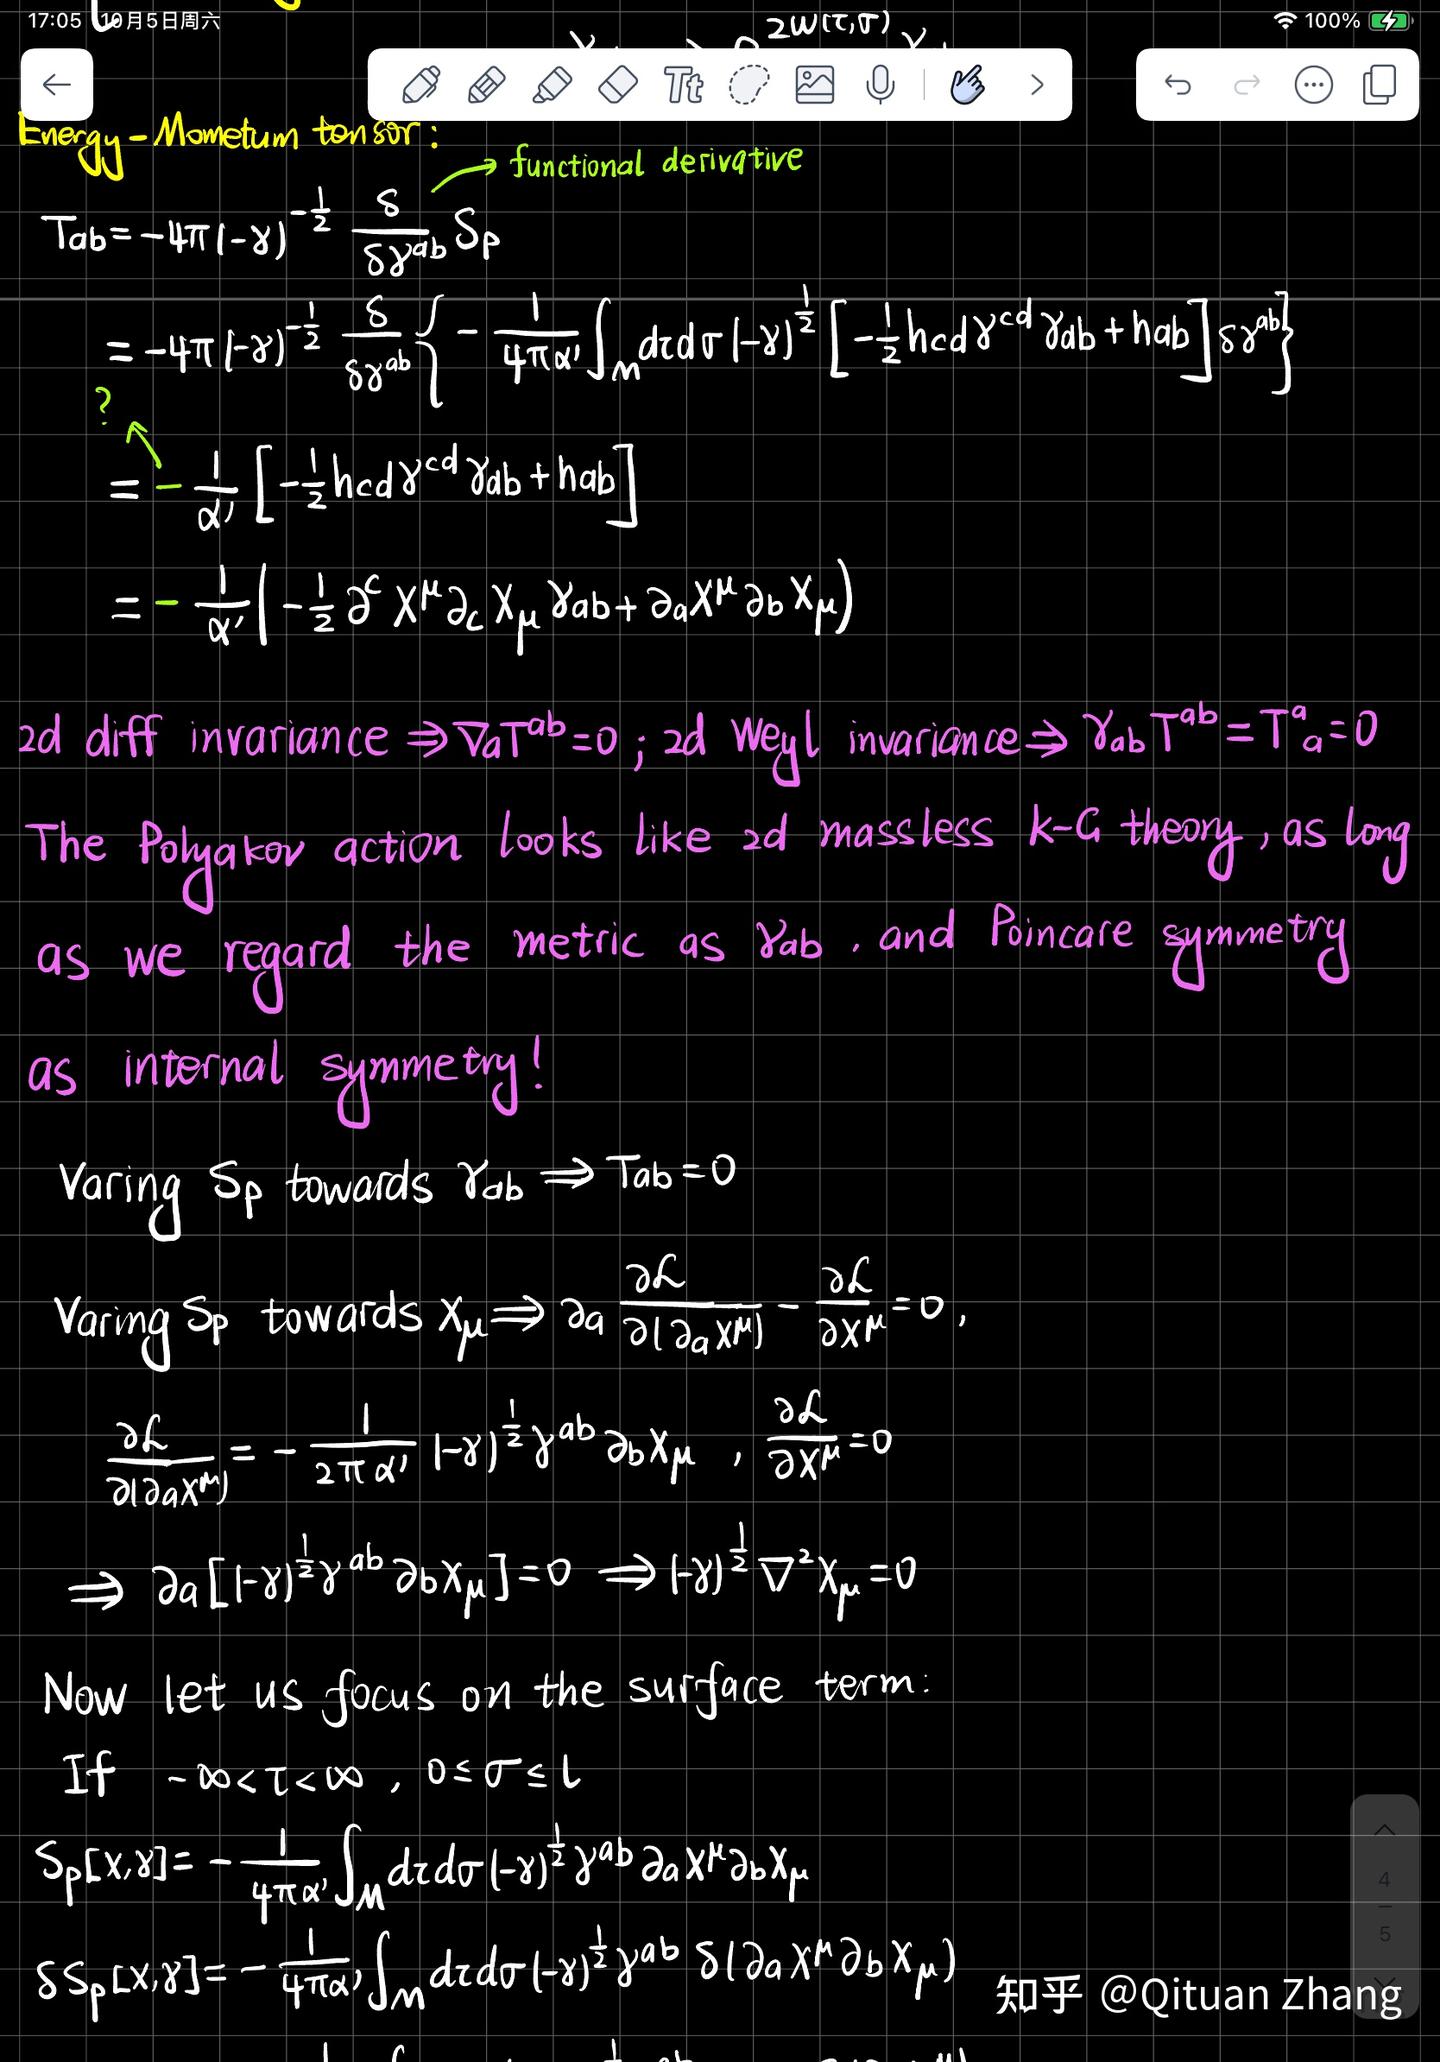 17:05 10月5日周六
100%
2W(τ,σ)
Tt
Energy-Mometum tensor:
functional derivative
Tab=-4π(-γ)^{-1/2} δ/δγ^{ab} Sp
=-4π(-γ)^{-1/2} δ/δγ^{ab} { -1/4πα' ∫_M dτdσ(-γ)^{1/2} [-1/2 hcd γ^{cd} γab + hab] δγ^{ab} }
?
= - 1/α' [-1/2 hcd γ^{cd} γab + hab]
= - 1/α' (-1/2 ∂^c X^μ ∂_c X_μ γab + ∂a X^μ ∂b X_μ)
2d diff invariance ⇒ ∇aT^{ab}=0 ; 2d Weyl invariance ⇒ γ_{ab} T^{ab} = T^a_a = 0
The Polyakov action looks like 2d massless K-G theory, as long
as we regard the metric as γab . and Poincare symmetry
as internal symmetry!
Varing Sp towards γab ⇒ Tab=0
Varing Sp towards X_μ ⇒ ∂a ∂L/∂(∂aX^μ) - ∂L/∂X^μ = 0 ,
∂L/∂(∂aX^μ) = - 1/2πα' (-γ)^{1/2} γ^{ab} ∂b X_μ , ∂L/∂X^μ = 0
⇒ ∂a [(-γ)^{1/2} γ^{ab} ∂b X_μ] = 0 ⇒ (-γ)^{1/2} ∇² X_μ = 0
Now let us focus on the surface term:
If -∞<τ<∞ , 0≤σ≤l
Sp[X,γ] = - 1/4πα' ∫_M dτdσ(-γ)^{1/2} γ^{ab} ∂aX^μ ∂bX_μ
δSp[X,γ] = - 1/4πα' ∫_M dτdσ(-γ)^{1/2} γ^{ab} δ(∂aX^μ ∂bX_μ)
4
5
知乎 @Qituan Zhang